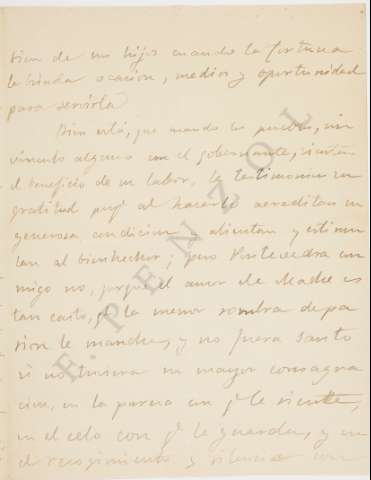 bien de un hijo cuando la fortuna
la brinda ocasión, medios y oportunidad
para servirla
Bien está, que cuando los pueblos, sin
vínculo alguno con el gobernante, sienten
el beneficio de su labor, le testimonien su
gratitud pues al hacerlo acreditan su
generosa condición y alientan y estimu
lan al bienhechor; pero Pontevedra con
migo no, porque el amor de Madre es
tan casto, q.e la menor sombra de pa
sion le mancha, y no fuera santo
si no tuviera su mayor consagra
cion, en la pureza con q.e se siente,
en el celo con q.e se guarda, y en
el recogimiento y silencio con
E. PENZOL